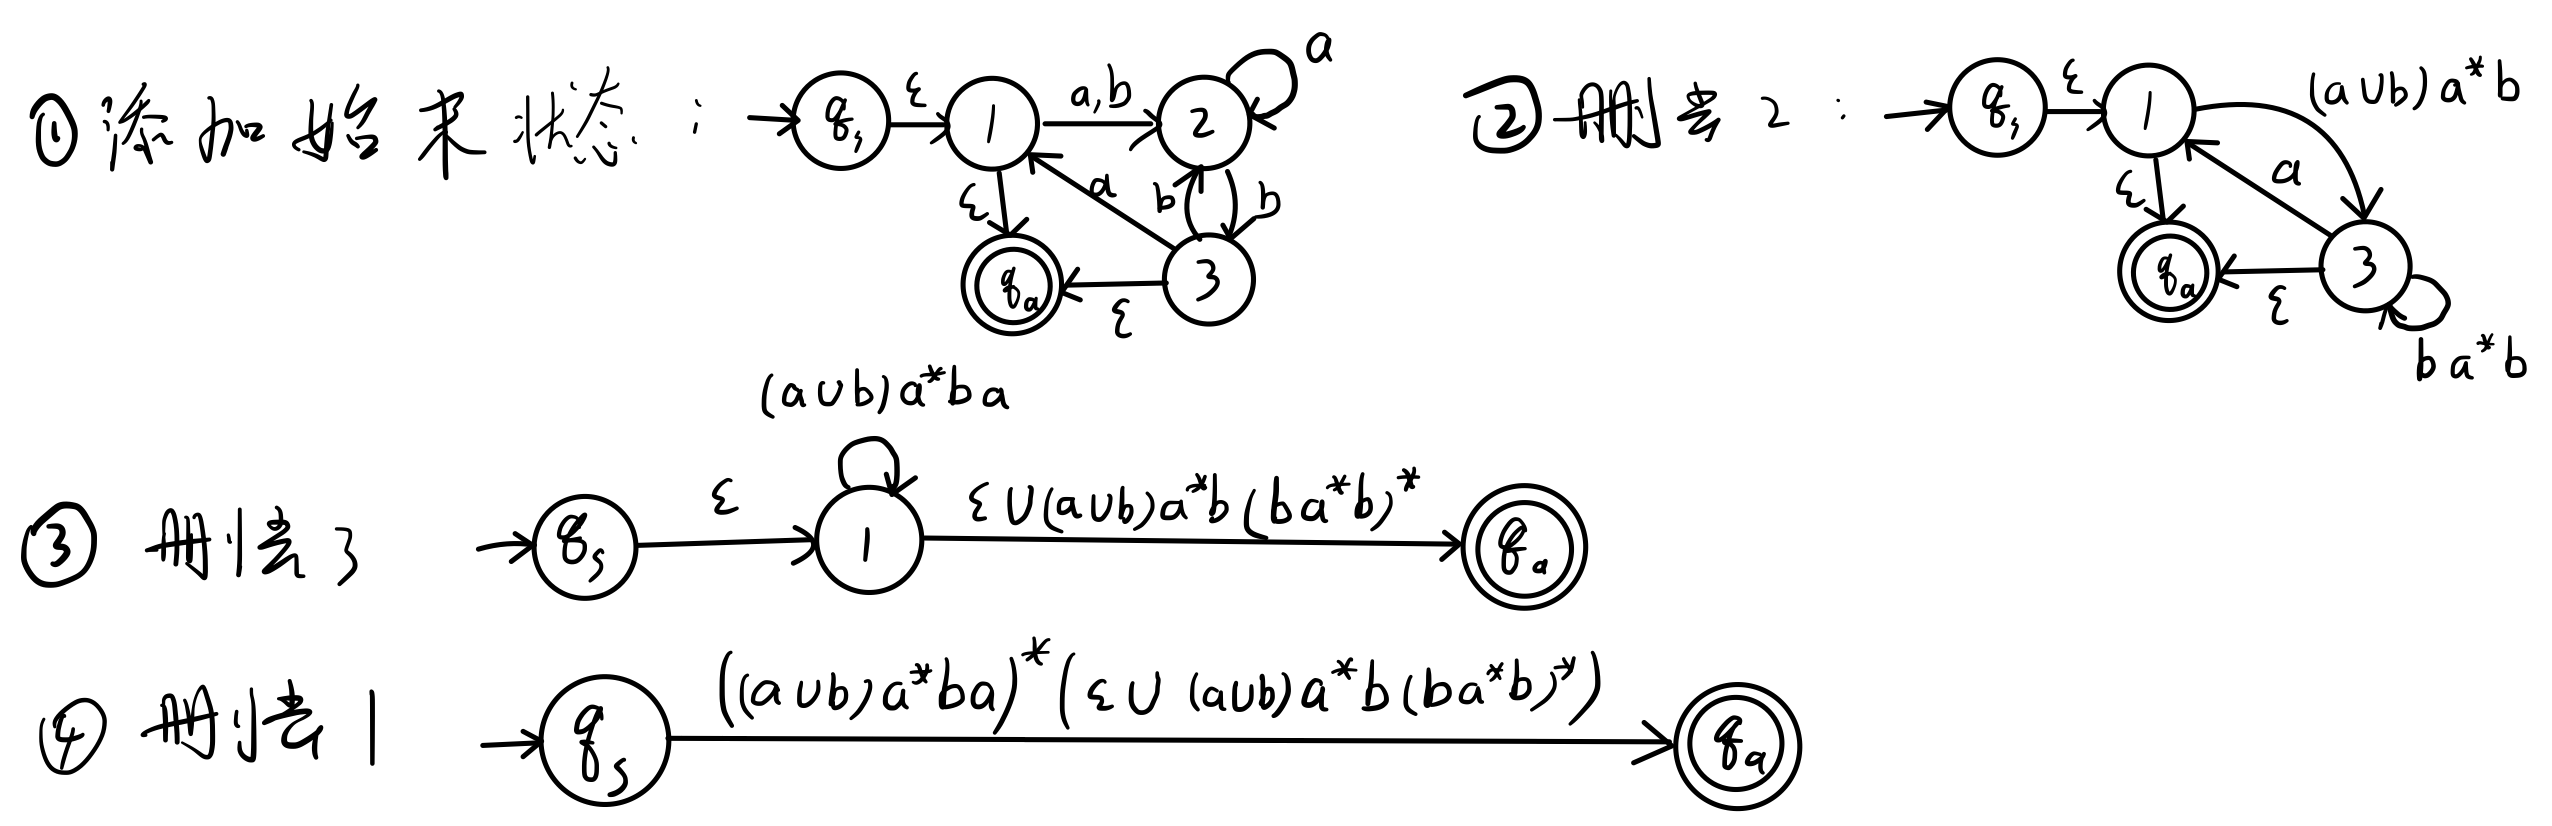 ① 添加始末状态: q_s ε 1 a,b 2 a
ε a b b
q_a ε 3
② 删去 2: q_s ε 1 (a∪b)a*b
ε a
q_a ε 3
ba*b
(a∪b)a*ba
③ 删去 3 q_s ε 1 ε∪(a∪b)a*b(ba*b)* q_a
④ 删去 1 q_s ((a∪b)a*ba)*(ε∪(a∪b)a*b(ba*b)*) q_a